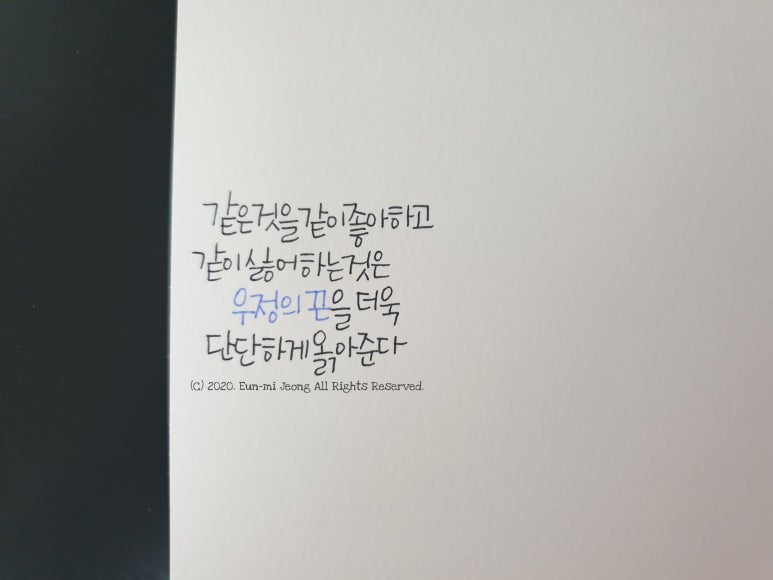 같은것을같이좋아하고
같이싫어하는것은
우정의 끈을 더욱
단단하게옭아준다
(C) 2020. Eun-mi Jeong All Rights Reserved.